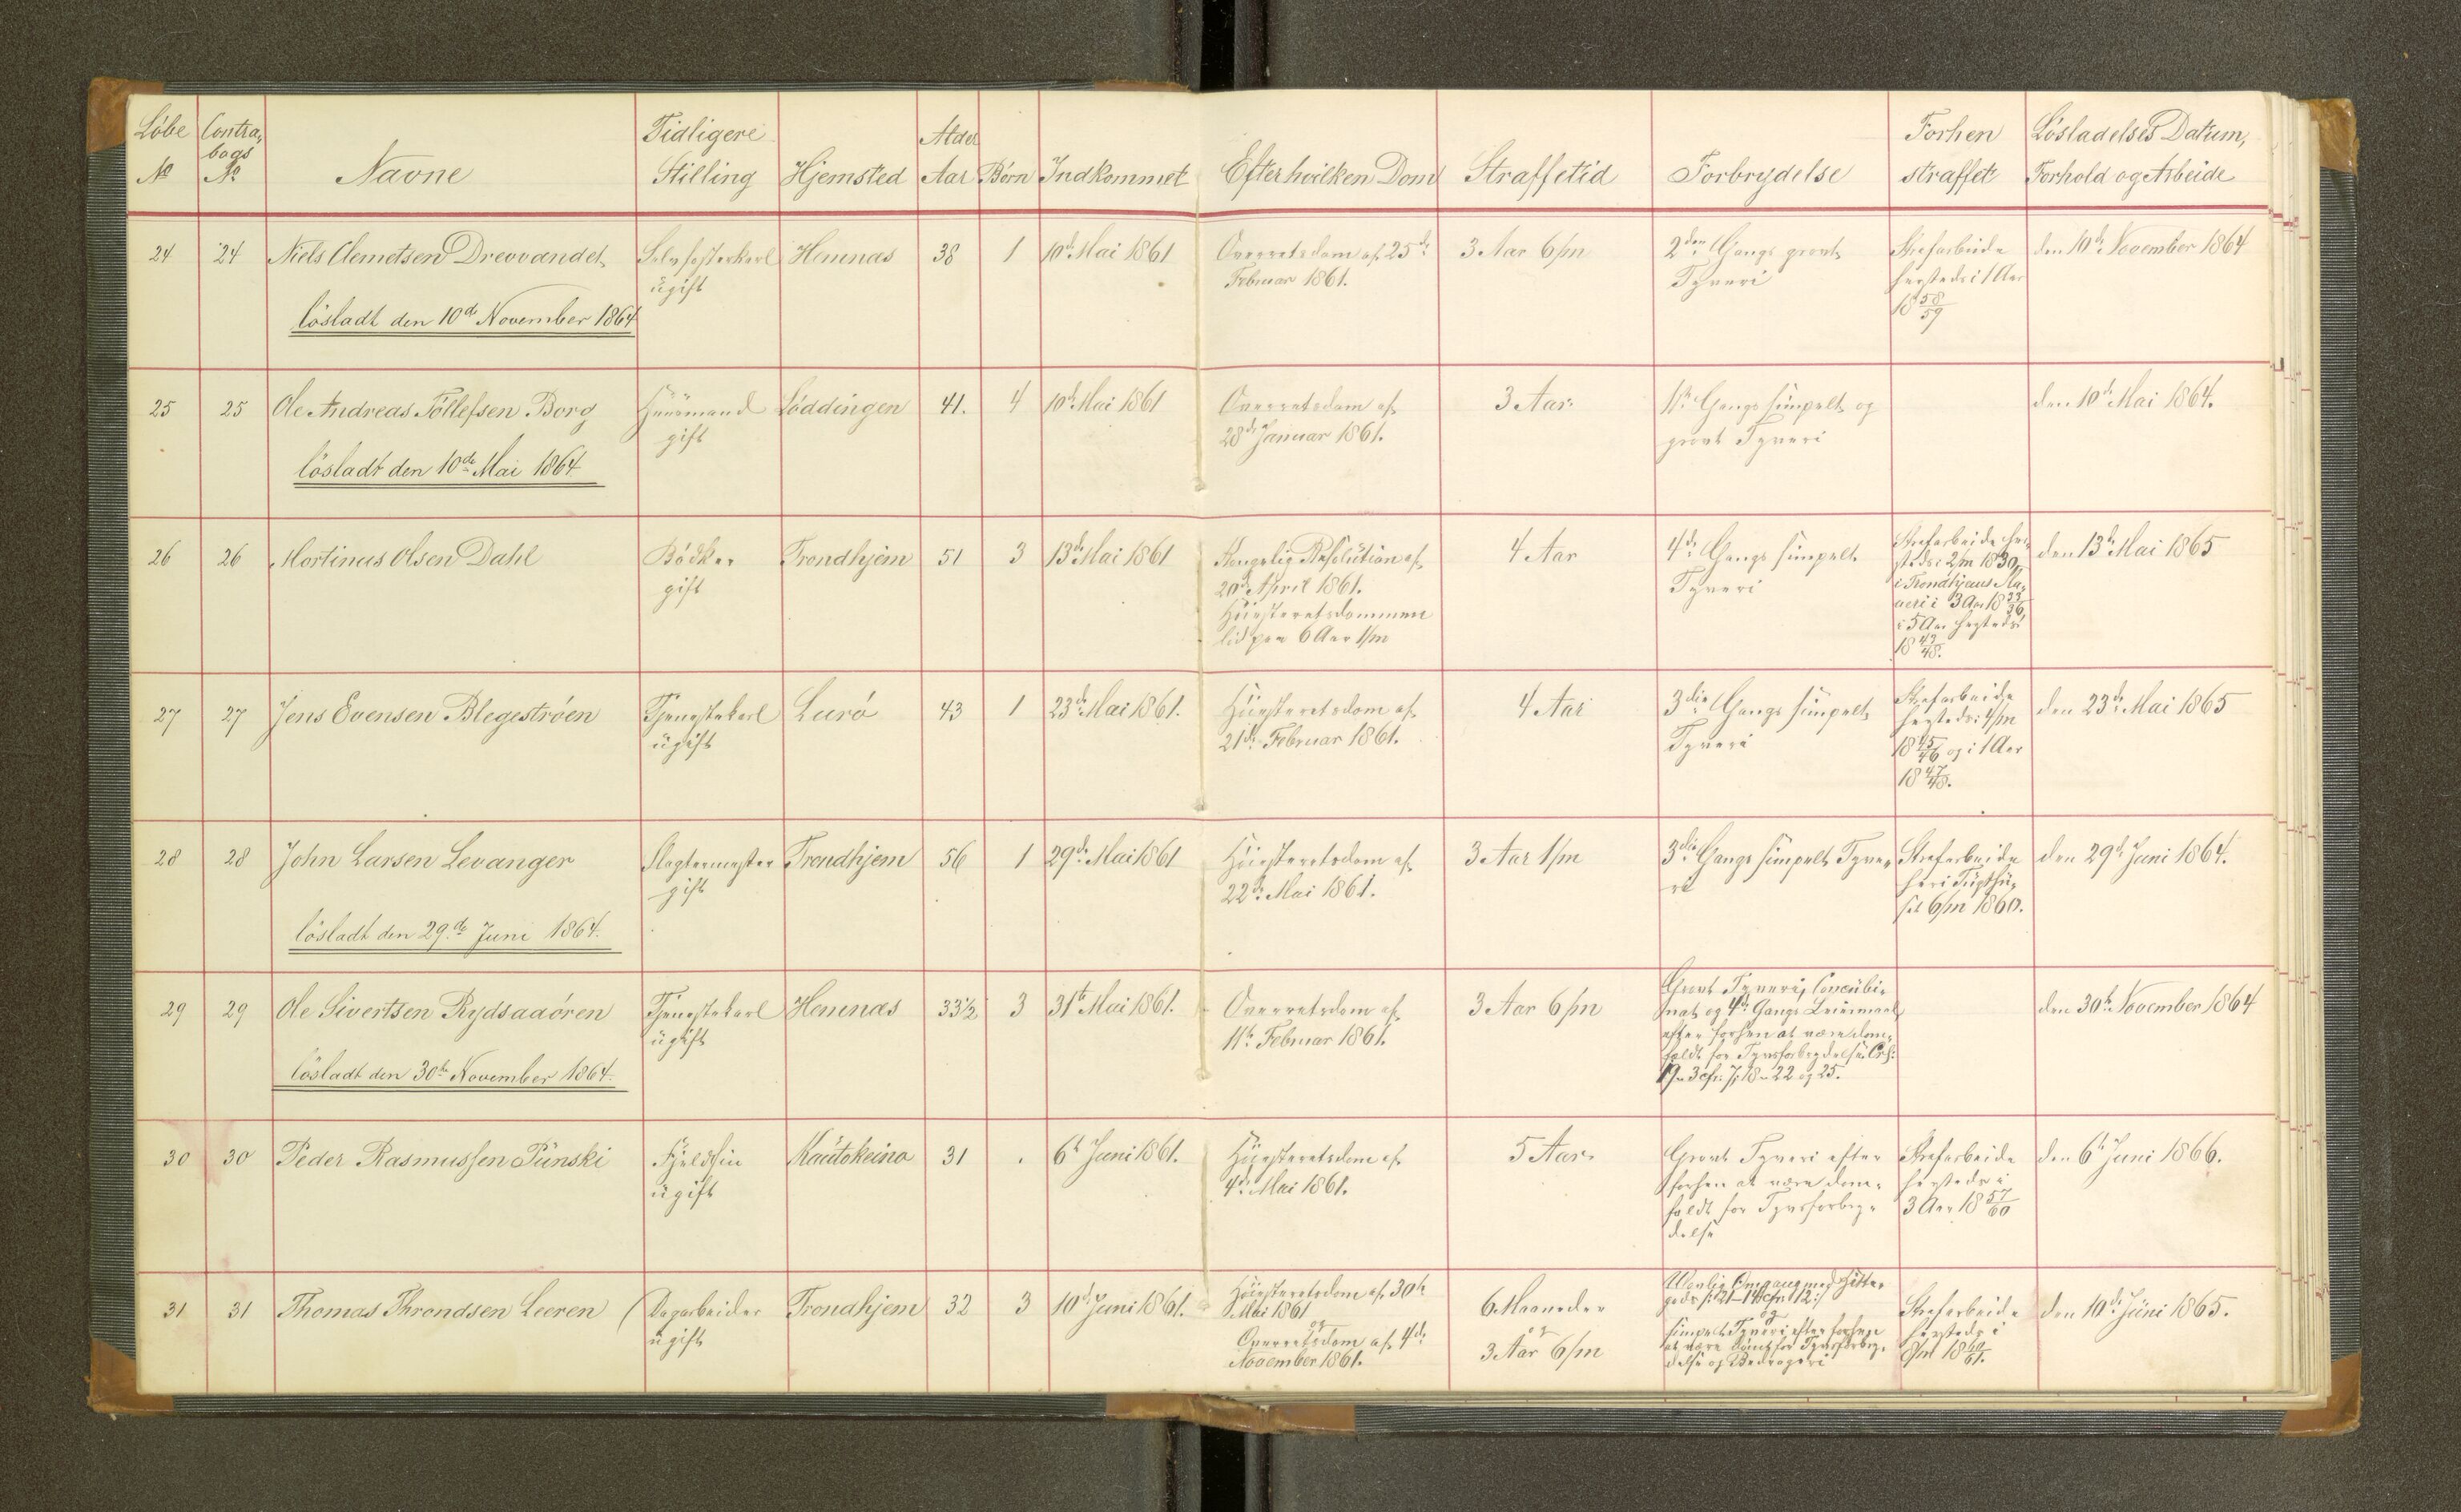 Löbe Contra- Tidligere Alder Forhen Lösladelses Datum,
bogs
No No Navne Stilling Hjemsted Aar Börn Indkommet Efter hvilken Dom Straffetid Forbrydelse straffet Forhold og Arbeide
24 24 Niels Clemetsen Drevvandet, Selvfosterkarl Hemnæs 38 1 10de Mai 1861 Overretsdom af 25de 3 Aar 6/m 2den Gangs grovt Strafarbeide den 10de November 1864
ugift Februar 1861. Tyveri hersteds i 1 Aar
lösladt den 10de November 1864 18 58/59
25 25 Ole Andreas Tollefsen Borg Huusmand Löddingen 41. 4 10de Mai 1861 Overretsdom af 3 Aar. 1ste Gangs simpelt og den 10de Mai 1864.
gift 28de Januar 1861. grovt Tyveri
lösladt den 10de Mai 1864
26 26 Martinus Olsen Dahl Bödker Trondhjem 51 3 13de Mai 1861 Kongelig Resolution af 4 Aar 4de Gangs simpelt Strafarbeide her- den 13de Mai 1865
gift 20de April 1861. Tyveri steds i 2/m 1830,
Höiesteretsdommen i Trondhjems Sla-
lid paa 6 Aar 1/m veri i 3 Aar 18 33/36
i 5 Aar hersteds
18 43/48.
27 27 Jens Evensen Blegeströen Tjenestekarl Lurö 43 1 23de Mai 1861. Höiesteretsdom af 4 Aar 3die Gangs simpelt Strafarbeide den 23de Mai 1865
ugift 21de Februar 1861. Tyveri hersteds i 4/m
18 45/46 og i 1 Aar
18 47/48.
28 28 John Larsen Levanger Slagtermester Trondhjem 56 1 29de Mai 1861 Höiesteretsdom af 3 Aar 1/m 3die Gangs simpelt Tyve- Strafarbeide den 29de Juni 1864.
gift 22de Mai 1861. ri her i Tugthu-
set 6/m 1860.
lösladt den 29de Juni 1864.
29 29 Ole Sivertsen Rydsaaören Tjenestekarl Hemnæs 33½ 3 31te Mai 1861. Overretsdom af 3 Aar 6/m Grovt Tyveri, Concubi- den 30te November 1864
ugift 11te Februar 1861. nat og 4de Gangs Leiermaal
efter forhen at være dom-
fældt for Tyvsforbrydelse
lösladt den 30te November 1864. 18 - 22 og 25.
30 30 Peder Rasmussen Punski Fjeldfin Kautokeino 31 . 6te Juni 1861. Höiesteretsdom af 5 Aar. Grovt Tyveri efter Strafarbeide den 6te Juni 1866.
ugift 4de Mai 1861. forhen at være dom- hersteds i
fældt for Tyvsforbry- 3 Aar 18 57/60
delse
31 31 Thomas Throndsen Leeren Dagarbeider Trondhjem 32 3 10de Juni 1861. Höiesteretsdom af 30te 6 Maaneder Ulovlig Omgang med Hitte- Strafarbeide den 10de Juni 1865.
ugift Mai 1861 og gods hersteds i
og 3 Aar 6/m og 18 60/61.
Overretsdom af 4de simpelt Tyveri efter forhen
November 1861. at være dömt for Tyvsforbry-
delse og Bedrageri